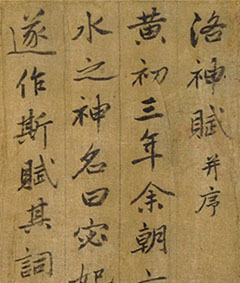 洛神賦并序
黃初三年余朝
水之神名曰宓妃
遂作斯賦其詞